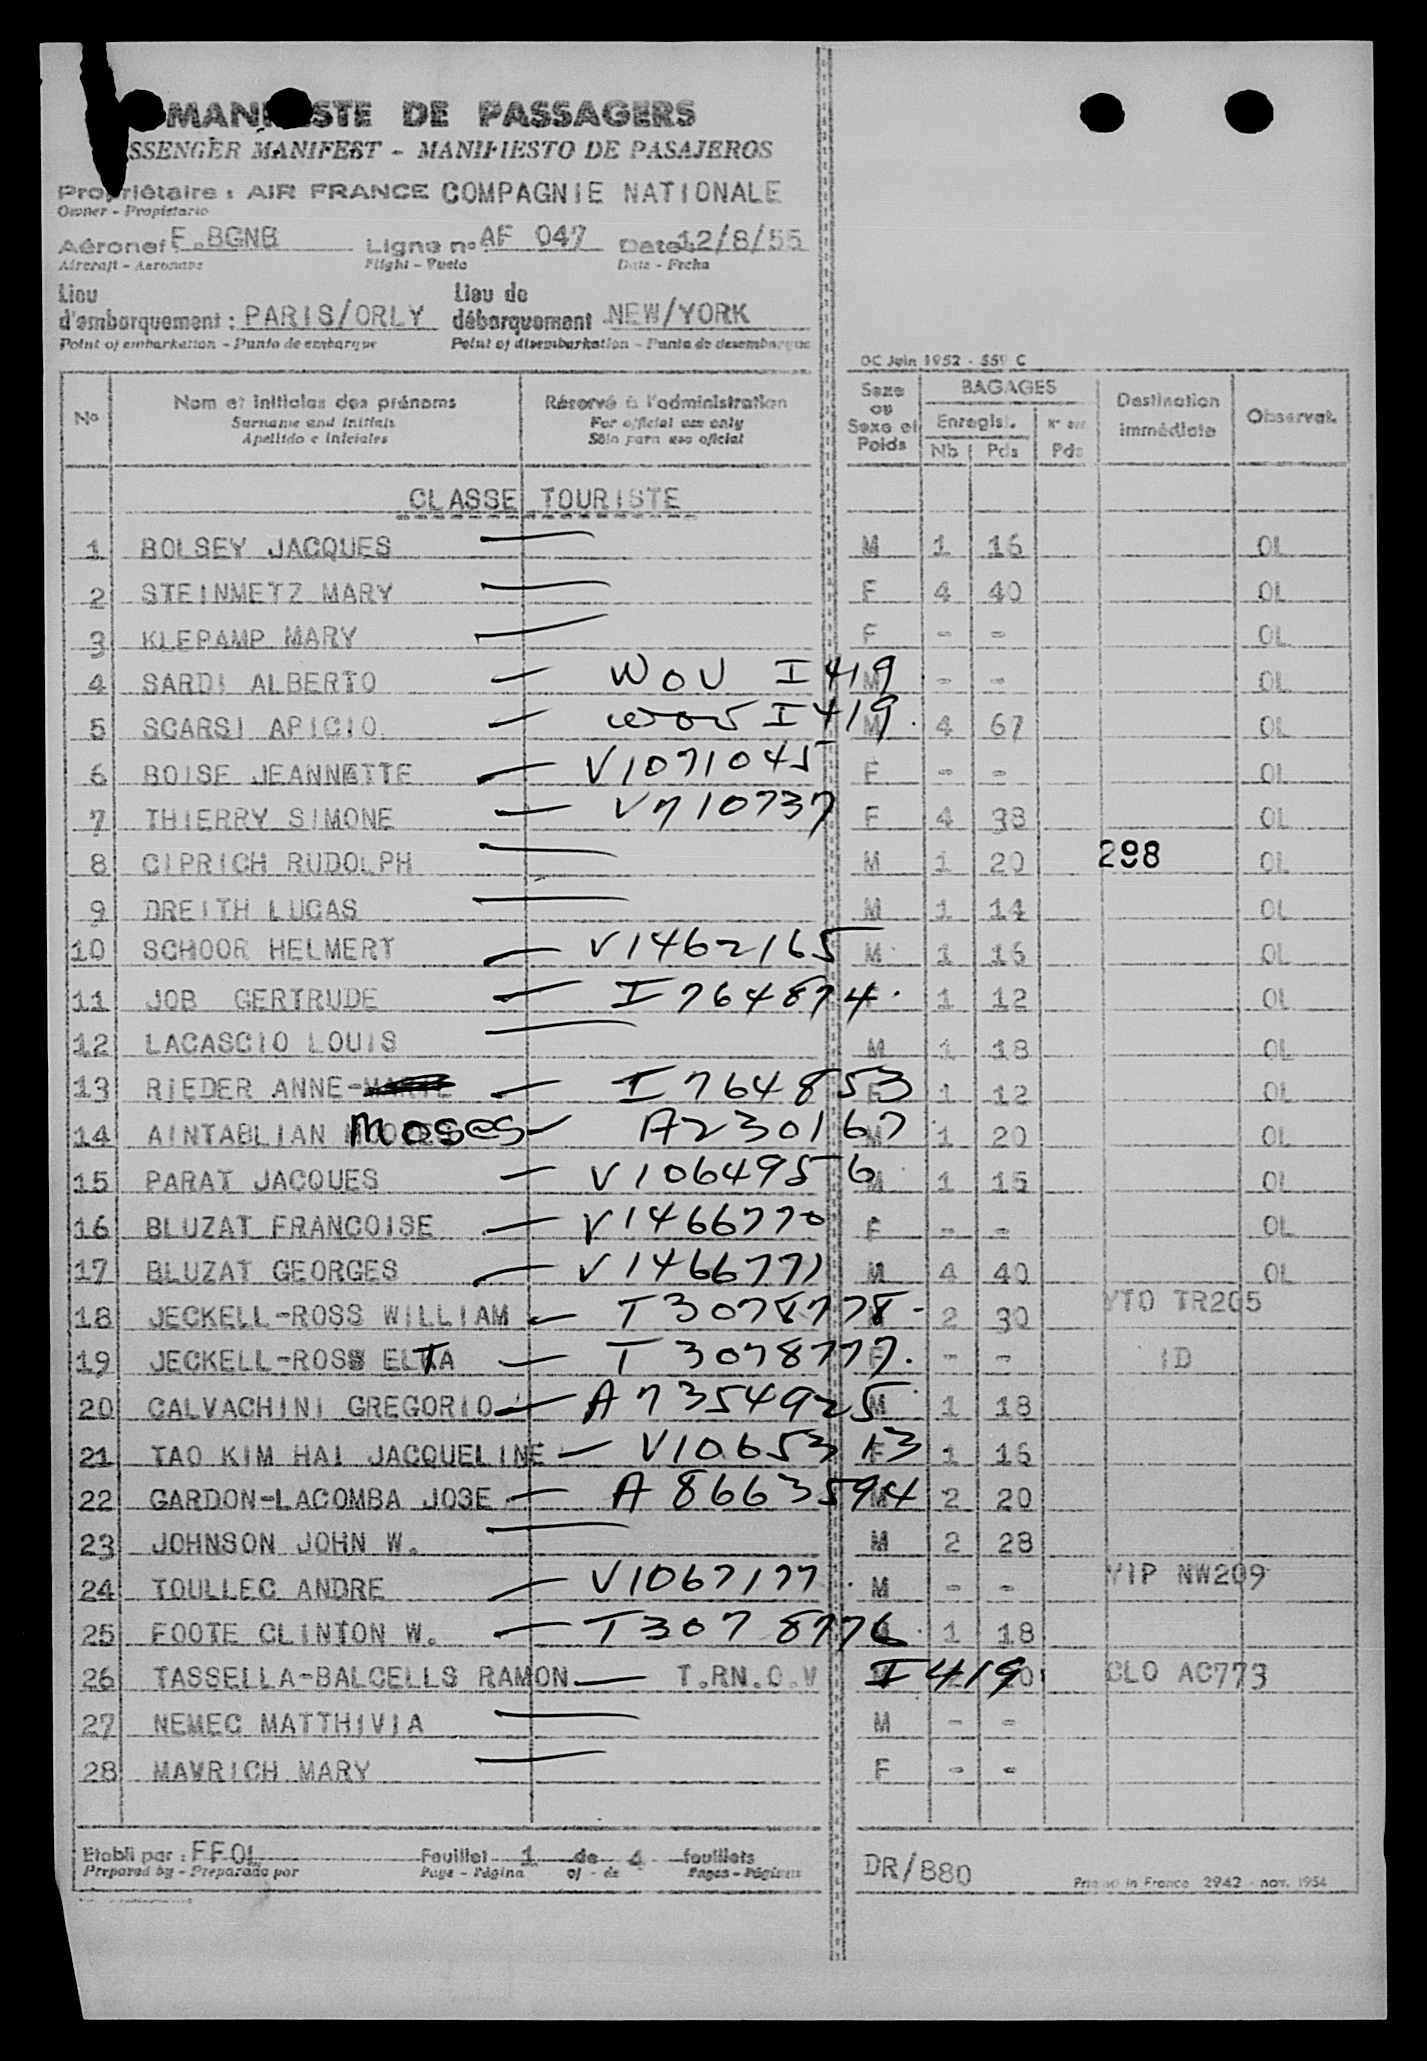 MANI STE DE PASSAGERS
SSENGER MANIFEST - MANIFIESTO DE PASAJEROS
Propriétaire : AIR FRANCE COMPAGNIE NATIONALE
Owner - Propietario
Aéronef F.BGNB Ligne n° AF 047 Date 12/8/55
Aircraft - Aeronave Flight - Vuelo Date - Fecha
Lieu Lieu de
d'embarquement : PARIS/ORLY débarquement NEW/YORK
Point of embarkation - Punto de embarque Point of disembarkation - Punto de desembarque
OC Juin 1952 - 559 C
No Nom et initiales des prénoms Réservé à l'administration Sexe ou Sexe et Poids BAGAGES Destination immédiate Observat.
Surname and initials For official use only Enregist.
Apellido e iniciales Sólo para uso oficial Nb Pds Pds
CLASSE TOURISTE
1 BOLSEY JACQUES — M 1 16 OL
2 STEINMETZ MARY — F 4 40 OL
3 KLEPAMP MARY — F - - OL
4 SARDI ALBERTO — WOV I 419 M - - OL
5 SCARSI APICIO — WOV I 419 M 4 67 OL
6 BOISE JEANNETTE — V1071045 F - - OL
7 THIERRY SIMONE — V710737 F 4 38 OL
8 CIPRICH RUDOLPH — M 1 20 298 OL
9 DREITH LUCAS — M 1 14 OL
10 SCHOOR HELMERT — V1462165 M 1 16 OL
11 JOB GERTRUDE — I764874 F 1 12 OL
12 LACASCIO LOUIS — M 1 18 OL
13 RIEDER ANNE- — I764853 F 1 12 OL
14 AINTABLIAN Moses — A230167 M 1 20 OL
15 PARAT JACQUES — V1064956 M 1 15 OL
16 BLUZAT FRANCOISE — V1466770 F - - OL
17 BLUZAT GEORGES — V1466771 M 4 40 OL
18 JECKELL-ROSS WILLIAM — T3078778 M 2 30 YTO TR205
19 JECKELL-ROSS ELTA — T3078777 F - - ID
20 CALVACHINI GREGORIO — A7354925 M 1 18
21 TAO KIM HAI JACQUELINE — V1065313 F 1 16
22 GARDON-LACOMBA JOSE — A8663594 M 2 20
23 JOHNSON JOHN W. — M 2 28
24 TOULLEC ANDRE — V1067177 M - - YIP NW209
25 FOOTE CLINTON W. — T3078776 M 1 18
26 TASSELLA-BALCELLS RAMON — T.RN.O.W I 419 CLO AC773
27 NEMEC MATTHIVIA — M - -
28 MAVRICH MARY — F - -
Etabli par : FFOL Feuillet 1 de 4 feuillets DR/880
Prepared by - Preparado por Page - Página of - de Pages - Páginas Printed in France 2942 - nov. 1954